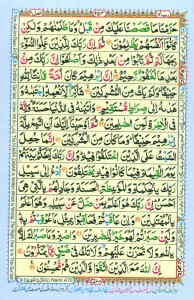 حَرَّمْنَا مَا قَصَصْنَا عَلَيْكَ مِنْ قَبْلُ وَمَا ظَلَمْنٰهُمْ وَلٰكِنْ
كَانُوْٓا اَنْفُسَهُمْ يَظْلِمُوْنَ ثُمَّ اِنَّ رَبَّكَ لِلَّذِيْنَ عَمِلُوا السُّوْٓءَ
بِجَهَالَةٍ ثُمَّ تَابُوْا مِنْۢ بَعْدِ ذٰلِكَ وَاَصْلَحُوْٓا اِنَّ رَبَّكَ مِنْۢ
بَعْدِهَا لَغَفُوْرٌ رَّحِيْمٌ اِنَّ اِبْرٰهِيْمَ كَانَ اُمَّةً قَانِتًا لِّلّٰهِ
حَنِيْفًا وَلَمْ يَكُ مِنَ الْمُشْرِكِيْنَ شَاكِرًا لِّاَنْعُمِهٖ اِجْتَبٰىهُ وَ
هَدٰىهُ اِلٰى صِرَاطٍ مُّسْتَقِيْمٍ وَاٰتَيْنٰهُ فِى الدُّنْيَا حَسَنَةً وَاِنَّهٗ
فِى الْاٰخِرَةِ لَمِنَ الصّٰلِحِيْنَ ثُمَّ اَوْحَيْنَآ اِلَيْكَ اَنِ اتَّبِعْ مِلَّةَ
اِبْرٰهِيْمَ حَنِيْفًا وَمَا كَانَ مِنَ الْمُشْرِكِيْنَ اِنَّمَا جُعِلَ
السَّبْتُ عَلَى الَّذِيْنَ اخْتَلَفُوْا فِيْهِ وَاِنَّ رَبَّكَ لَيَحْكُمُ بَيْنَهُمْ
يَوْمَ الْقِيٰمَةِ فِيْمَا كَانُوْا فِيْهِ يَخْتَلِفُوْنَ اُدْعُ اِلٰى سَبِيْلِ
رَبِّكَ بِالْحِكْمَةِ وَالْمَوْعِظَةِ الْحَسَنَةِ وَجَادِلْهُمْ بِالَّتِيْ هِيَ
اَحْسَنُ اِنَّ رَبَّكَ هُوَ اَعْلَمُ بِمَنْ ضَلَّ عَنْ سَبِيْلِهٖ وَهُوَ اَعْلَمُ
بِالْمُهْتَدِيْنَ وَاِنْ عَاقَبْتُمْ فَعَاقِبُوْا بِمِثْلِ مَا عُوْقِبْتُمْ بِهٖ
وَلَئِنْ صَبَرْتُمْ لَهُوَ خَيْرٌ لِّلصّٰبِرِيْنَ وَاصْبِرْ وَمَا صَبْرُكَ اِلَّا
بِاللّٰهِ وَلَا تَحْزَنْ عَلَيْهِمْ وَلَا تَكُ فِيْ ضَيْقٍ مِّمَّا يَمْكُرُوْنَ
اِنَّ اللّٰهَ مَعَ الَّذِيْنَ اتَّقَوْا وَّالَّذِيْنَ هُمْ مُّحْسِنُوْنَ